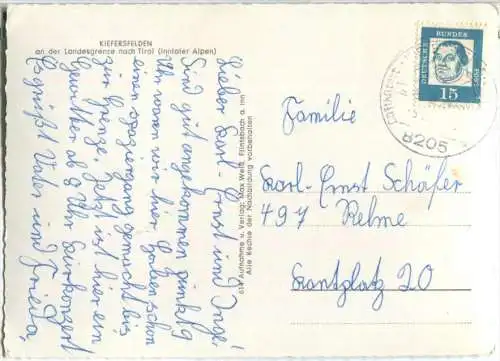 KIEFERSFELDEN
an der Landesgrenze nach Tirol (Inntaler Alpen)
Lieber Karl-Ernst und Inge!
Sind gut angekommen pünktlich
Uhr waren wir hier, haben schon
einen Spaziergang gemacht bis
zur Grenze. Jetzt ist hier ein
Kurkonzert
Es grüßt Vater und Frieda,
614 Aufnahme u. Verlag: Max Weiß, Flintsbach a. Inn
Alle Rechte der Nachbildung vorbehalten
DEUTSCHE BUNDESPOST
15
8205
Familie
Karl-Ernst Schäfer
497 Relme
Kantplatz 20